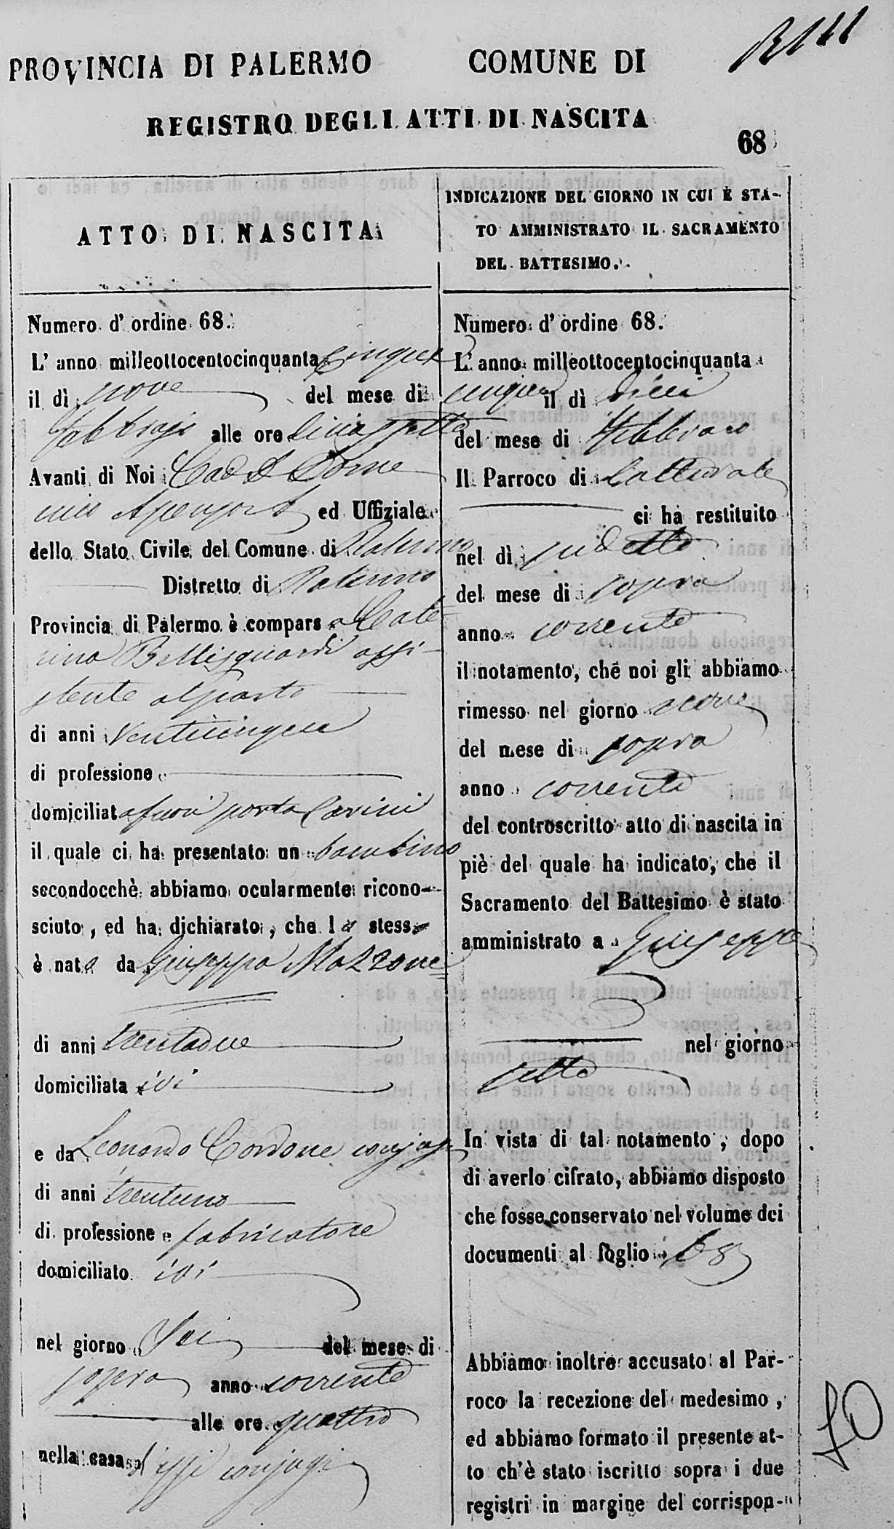 PROVINCIA DI PALERMO COMUNE DI
REGISTRO DEGLI ATTI DI NASCITA
68
ATTO DI NASCITA
Numero d' ordine 68.
L' anno milleottocentocinquanta cinque
il dì nove del mese di
Febbrajo alle ore diciassette
Avanti di Noi
ed Uffiziale
dello Stato Civile del Comune di Palermo
Distretto di Palermo
Provincia di Palermo è compars a Cate
rina Bellisguardi assi-
stente al parto
di anni Venticinque
di professione
domiciliata fuori porta Carini
il quale ci ha presentato un bambino
secondocchè abbiamo ocularmente ricono-
sciuto, ed ha dichiarato, che lo stesso
è nato da Giuseppa Mazzone
di anni trentadue
domiciliata ivi
e da Leonardo Cordone conjugi
di anni trentuno
di professione fabricatore
domiciliato ivi
nel giorno Sei del mese di
sopra anno corrente
alle ore quattro
nella casa d'essi conjugi
INDICAZIONE DEL GIORNO IN CUI È STA-
TO AMMINISTRATO IL SACRAMENTO
DEL BATTESIMO.
Numero d' ordine 68.
L' anno milleottocentocinquanta
cinque il dì dieci
del mese di Febbraro
Il Parroco di Cattedrale
ci ha restituito
nel dì sudetto
del mese di sopra
anno corrente
il notamento, che noi gli abbiamo
rimesso nel giorno nove
del mese di sopra
anno corrente
del controscritto atto di nascita in
piè del quale ha indicato, che il
Sacramento del Battesimo è stato
amministrato a Giuseppe
nel giorno
detto
In vista di tal notamento, dopo
di averlo cifrato, abbiamo disposto
che fosse conservato nel volume dei
documenti al foglio 68
Abbiamo inoltre accusato al Par-
roco la recezione del medesimo,
ed abbiamo formato il presente at-
to ch'è stato iscritto sopra i due
registri in margine del corrispon-